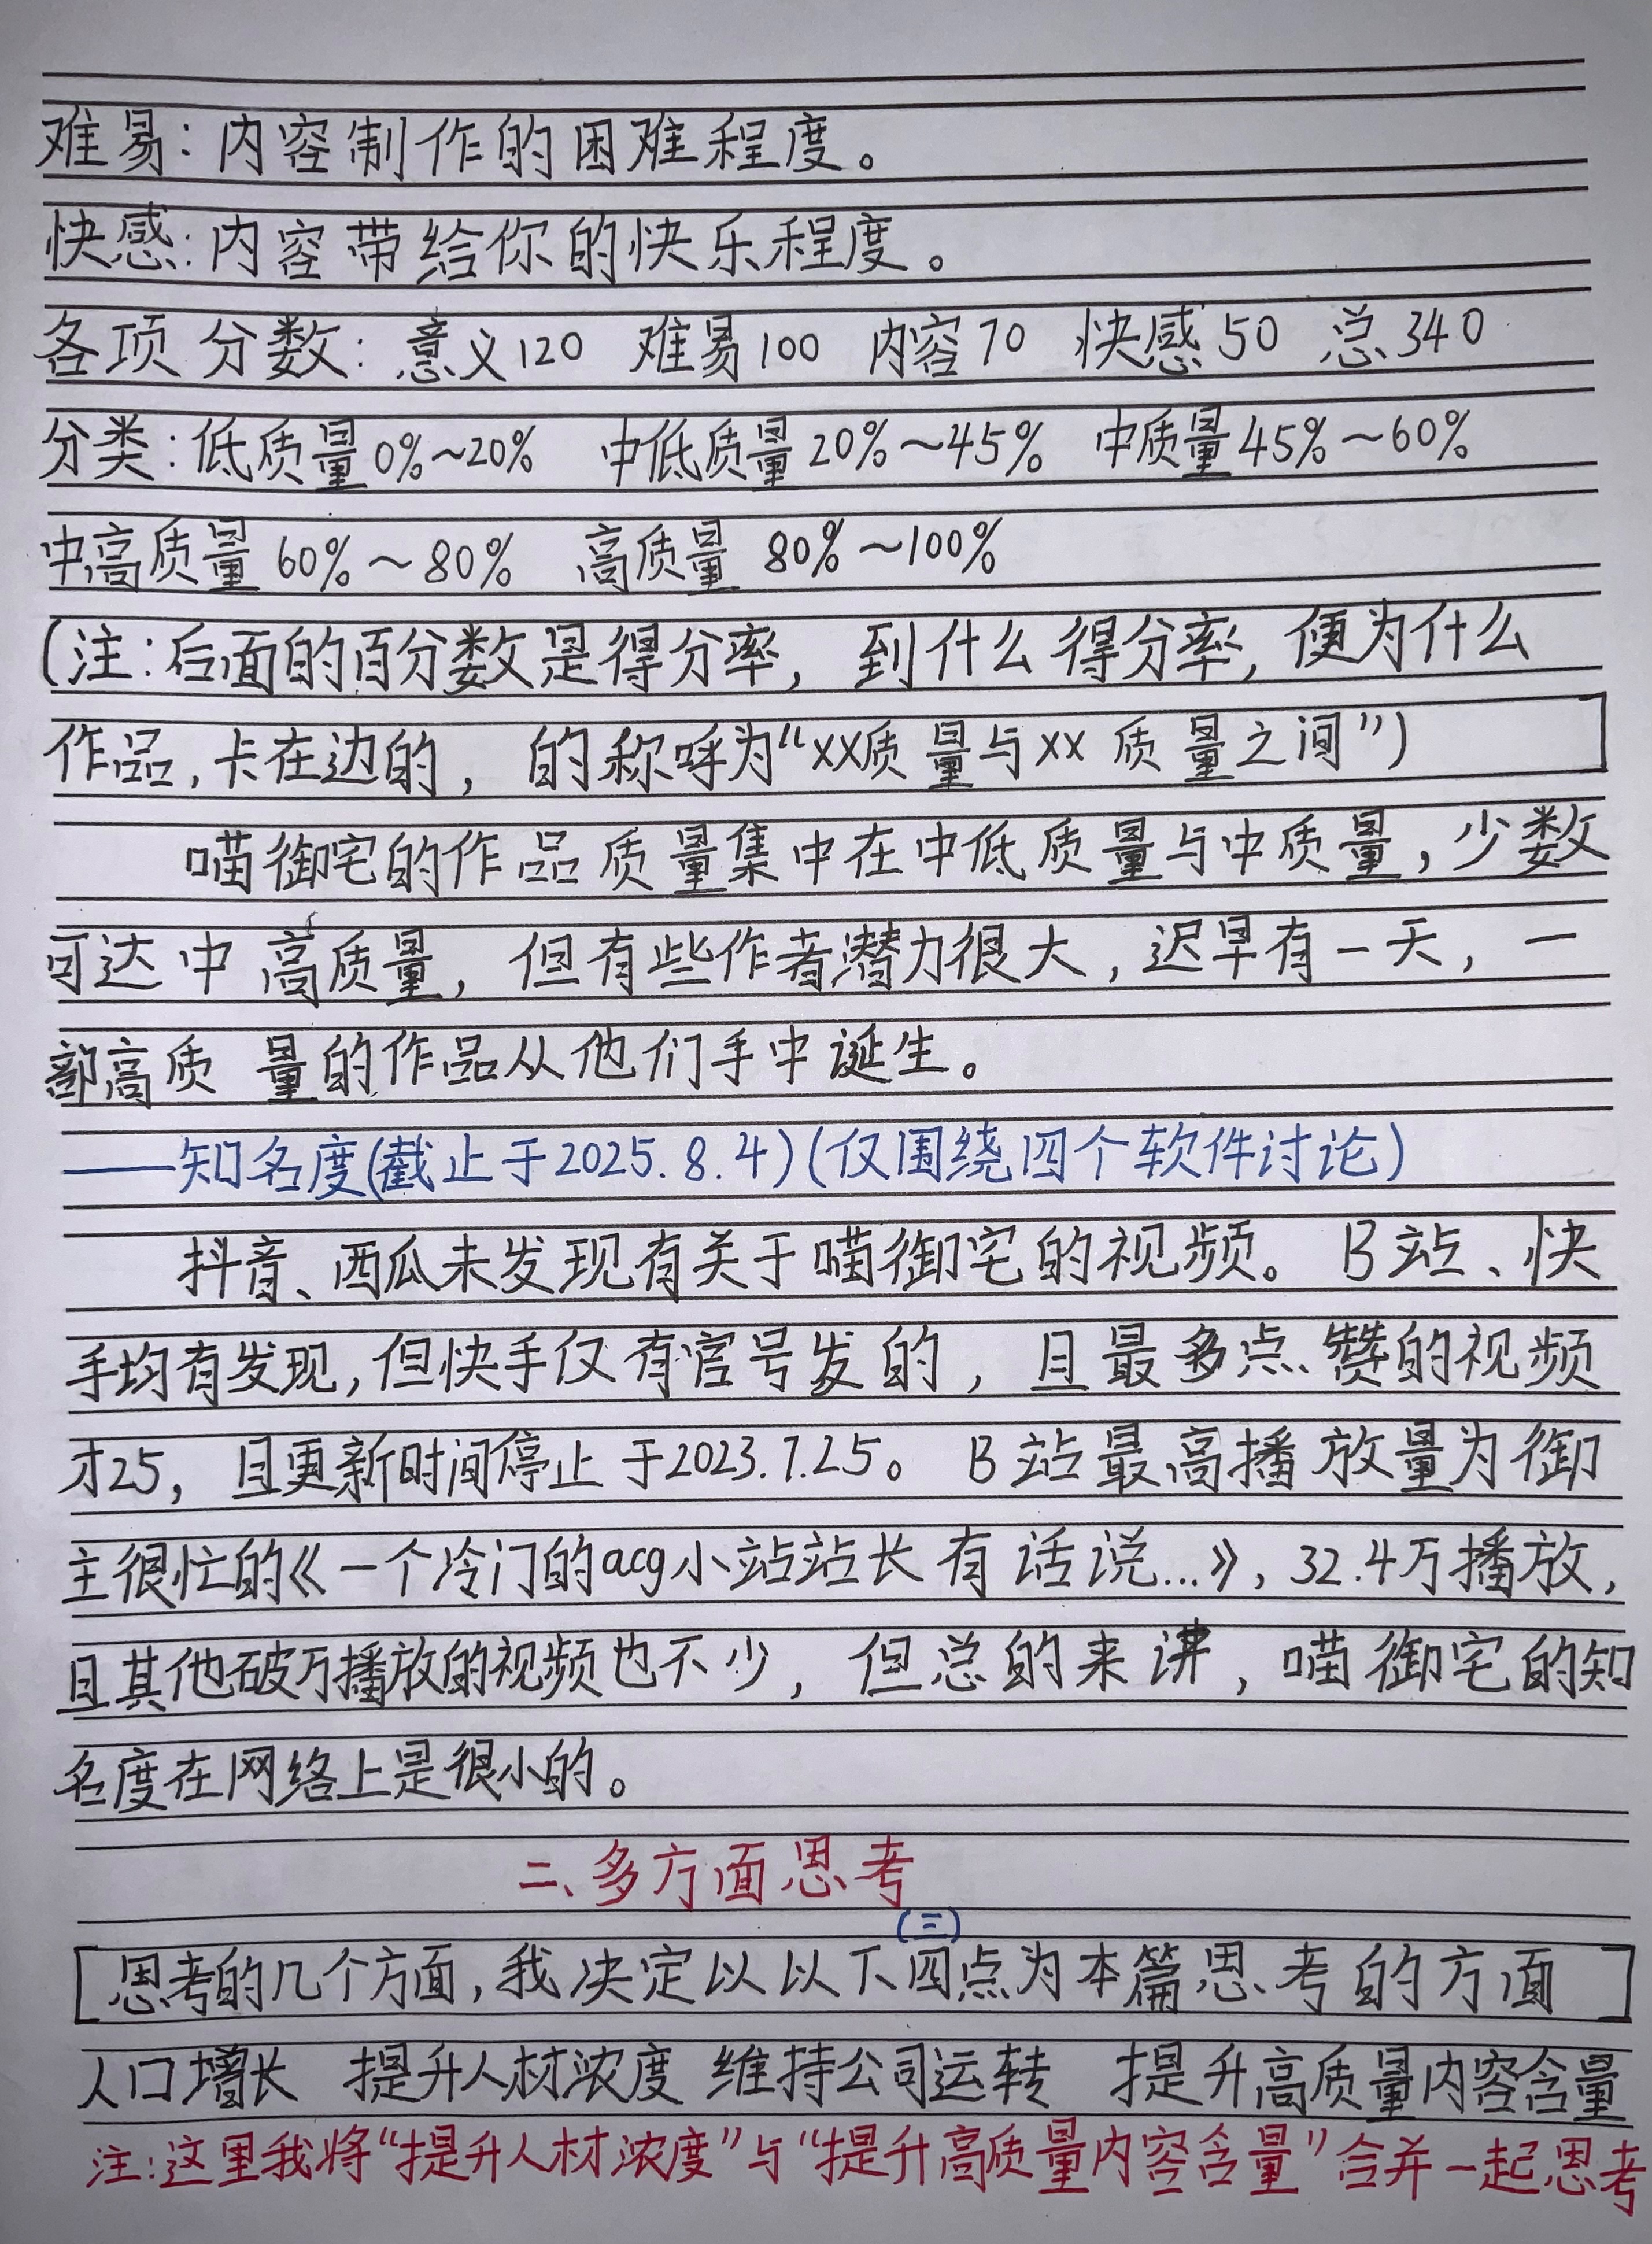 难易：内容制作的困难程度。
快感：内容带给你的快乐程度。
各项分数：意义120 难易100 内容70 快感50 总340
分类：低质量0%~20% 中低质量20%~45% 中质量45%~60%
中高质量60%~80% 高质量80%~100%
(注：后面的百分数是得分率，到什么得分率，便为什么
作品，卡在边的，的称呼为“xx质量与xx质量之间”)]
喵御宅的作品质量集中在中低质量与中质量，少数
可达中高质量，但有些作者潜力很大，迟早有一天，一
部高质量的作品从他们手中诞生。
——知名度(截止于2025.8.4)(仅围绕四个软件讨论)
抖音、西瓜未发现有关于喵御宅的视频。B站、快
手均有发现，但快手仅有官号发的，且最多点赞的视频
才25，且更新时间停止于2023.7.25。B站最高播放量为御
主很忙的《一个冷门的acg小站站长有话说...》，32.4万播放，
且其他破万播放的视频也不少，但总的来讲，喵御宅的知
名度在网络上是很小的。
二、多方面思考
(三)
[思考的几个方面，我决定以以下四点为本篇思考的方面]
人口增长 提升人材浓度 维持公司运转 提升高质量内容含量
注：这里我将“提升人材浓度”与“提升高质量内容含量”合并一起思考